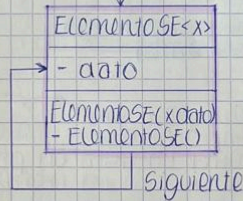 ElementoSE<x>
- dato
ElementoSE(x dato)
- ElementoSE()
siguiente